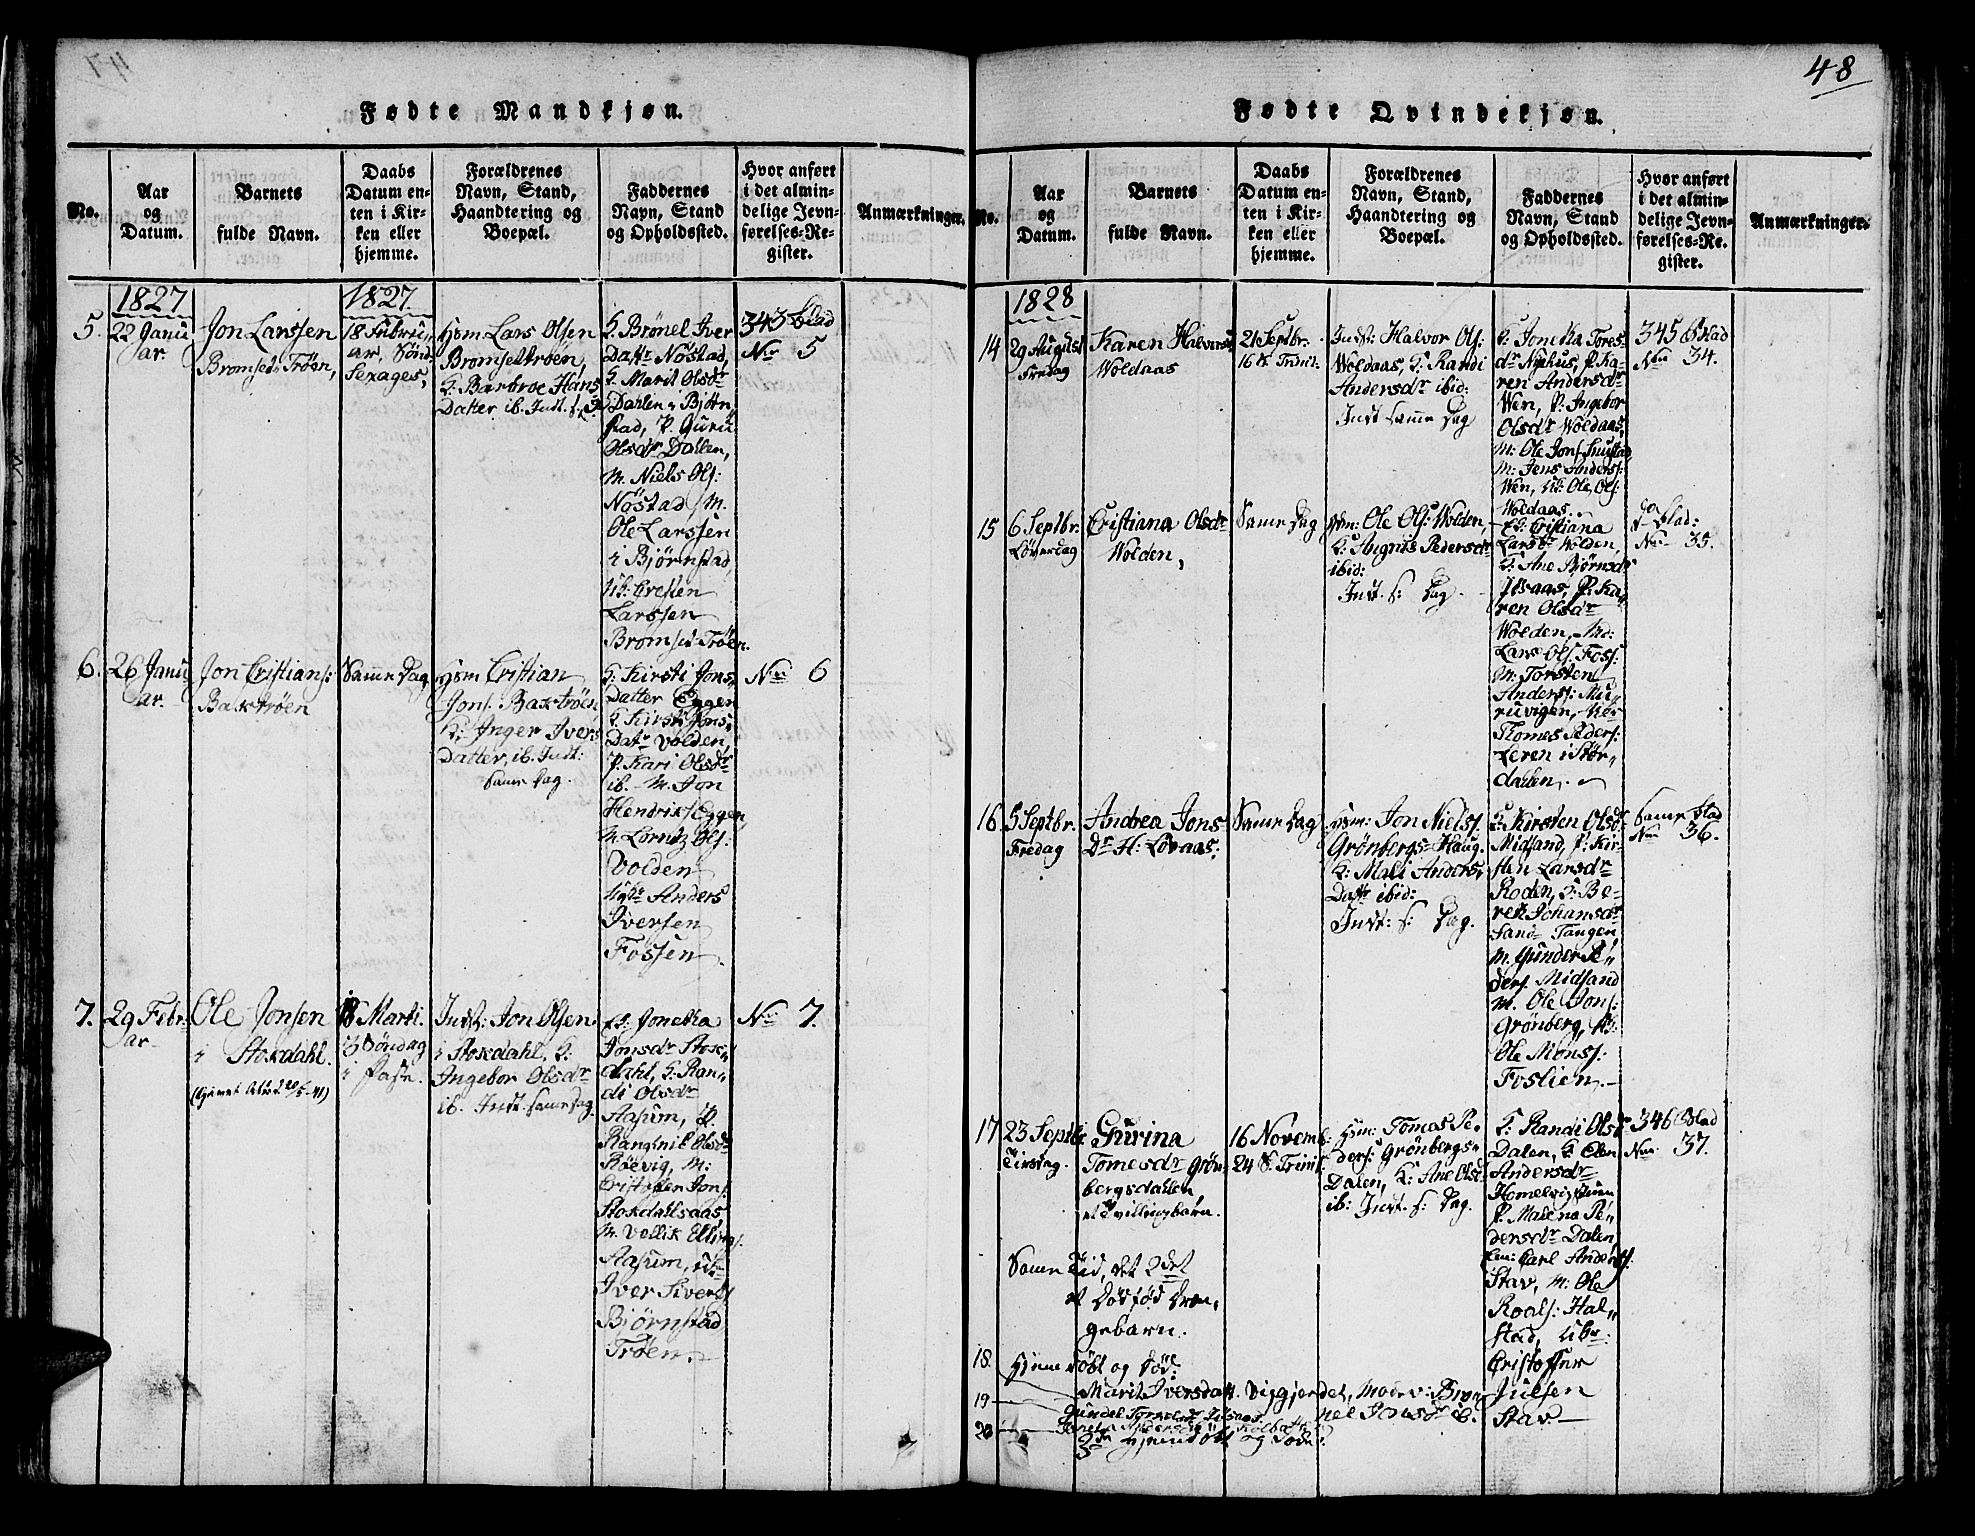 48
Fødte Mandkjøn.
No.
Aar
og
Datum.
Barnets
fulde Navn.
Daabs
Datum en-
ten i Kir-
ken eller
hjemme.
Forældrenes
Navn, Stand,
Haandtering og
Boepæl.
Faddernes
Navn, Stand
og Opholdssted.
Hvor anført
i det almin-
delige Jevn-
førelses-Re-
gister.
Anmærkninger.
1827
5.
22 Janu
ar.
Jon Larssen
Bromseds Trøen,
1827.
18 Februa
ar, Sønd.
Sexages,
Hsm Lars Olsen
Bromsettrøen,
K: Barbroe Hans
Datter ib. Int. s. D
K. Brønel Iver
Datr Nøstad,
K. Marit Olsdr
Dahlen i Biørn
stad, P. Guru
Olsdr Dahlen,
M. Niels Ols:
Nøstad, M.
Ole Larssen
i Biørnstad,
Uk: Cresten
Larssen
Bromsed-Trøen.
343 Blad
No 5
6.
26 Janu
ar.
Jon Cristians:
Baktrøen
Samme Dag
Hsm Cristian
Jons. Baktrøen
K: Inger Ivers
Datter, ib. Int:
Same Dag.
K: Kirsti Jons
Datter Eggen
K: Kirsti Jons
Datr Volden,
P. Kari Olsdr
ib. M. Jon
Hendriks. Eggen,
M. Lorntz Ols:
Volden
Uk: Anders
Iversen
Fossen
No 6
7.
29 Febr.
ar
Ole Jonsen
i Stokdahl.
18 Marti.
3 Søndag
i Faste.
Indst: Jon Olsen
i Stokdahl, K:
Ingebor Olsdr
ib. Int. samedag.
Jonetka
Jonsdr Stok
dahl, K: Ran
di Olsdr
Aasum, P.
Rangnil Olsdr
Røevig, M:
Cristofen Jons
Stokdahlsaas
M. Vellik Ellings.
Aasum, Uk:
Iver Sivers
Biørnstad
Trøen.
No 7.
Fødte Qvindekjøn.
No.
Aar
og
Datum.
Barnets
fulde Navn.
Daabs
Datum en-
ten i Kir-
ken eller
hjemme.
Forældrenes
Navn, Stand,
Haandtering og
Boepæl.
Faddernes
Navn, Stand
og Opholdssted.
Hvor anført
i det almin-
delige Jevn-
førelses-Re-
gister.
Anmærkninger.
1828
14
29 August
Fredag
Karen Halvorsd
Woldaas
21 Septbr.
16 S. Trinit.
Indst: Halvor Ols:
Woldaas, K: Randi
Andersdr ibid:
Int same Dag
K: Jonetka Tores
dr Nyehus, P. Ka
ren Andersdr
Wen, P: Ingebor
Olsdr Woldaas,
M: Ole Jons.
M: Jens Anders:
Wen, Uk: Ole Ols:
Woldaas.
345 Blad
No 34.
15
6 Septbr.
Løverdag
Cristiana Olsdr
Wolden,
Same Dag
Hsm: Ole Ols: Wolden,
K: Angnis Pedersdr
ibid:
Int. s: Dag.
Cristiana
Larsdr Wolden,
K: Ane Biørnsdr
P: Ka
ren Olsdr
Wolden, M:
Lars Ols. Foss:
M: Torsten
Anders: Mu
ruvigen,
Thomes Peders:
Leren i Stør
dahlen.
Blad:
No 35.
16
5 Septbr.
Fredag
Andrea Jons
Dr H: Lövaas:
Same Dag
Hsm: Jon Niels.
Grønbergs Haug
K: Mali Anders
Datr ibid:
Int: s: Dag.
K: Kirsten Olsdr
Midsand, P: Kir
sten Larsdr
Roden, K: Be
ret Johansdr
Sand Tangen
M. Gunder Pe
ders. Midsand
M. Ole Jons:
Grønberg, Uk:
Ole Mons:
Foslien.
Same Blad
No 36.
17
23 Septb
Tirsdag.
Gurina
Tomesdr Grøn
bergsdalen,
et Tvillingbarn.
16 Novemb:
24 S. Trinit.
Hsm: Tomas Pe
ders: Grønbergs
Dalen, K: Ane Olsd
ib: Int. s: Dag.
K. Randi Olsdr
Dalen, K: Elen
Andersdr
P. Malena Pe
dersdr Dalen,
Carl Anders.
Stav, M: Ole
Roals: Hal
stad, Uk:
Cristoffer
Julsen
Stav
346 Blad
No 37.
Same Tid, det 2det
et Dødfød Dren
gebarn.
18.
Hjemedøbt og Død:
19
Marit Iversdatt. Viggjerdet, Moder: Brø
nel Jensdr ib.
20
hjemedøbt og Døde.